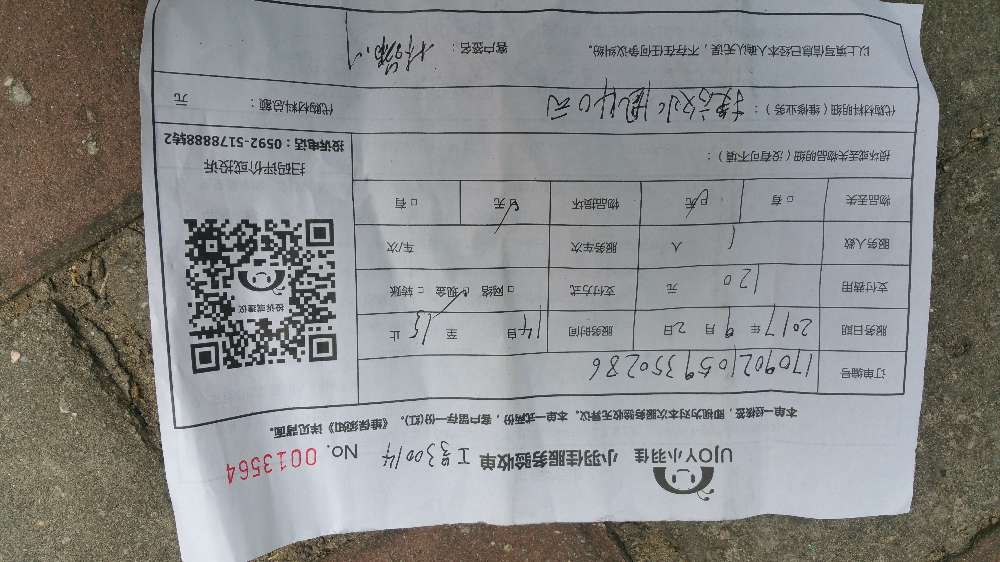 UJOY小羽佳 小羽佳服务验收单 工号30014 No. 0013564
本单一经核签，即视为对本次服务验收无异议。本单一式两份，客户留存一份(红)。《维保须知》详见背面。
订单编号 1709021059350286
服务日期 2017 年 9 月 2 日 服务时间 14 自 至 15 止
支付费用 120 元 支付方式 □ 网络 ☑ 现金 □ 转账
服务人数 1 人 服务车次 车/次
物品丢失 □ 有 ☑ 无 物品损坏 ☑ 无 □ 有
损坏或丢失物品明细（没有可不填）：
投诉或建议
扫码评价或投诉
投诉电话：0592-5178888转2
代购材料明细（维修业务）： 40元
代购材料总额： 元
以上填写信息已经本人确认无误，不存在任何争议纠纷。 客户签名：